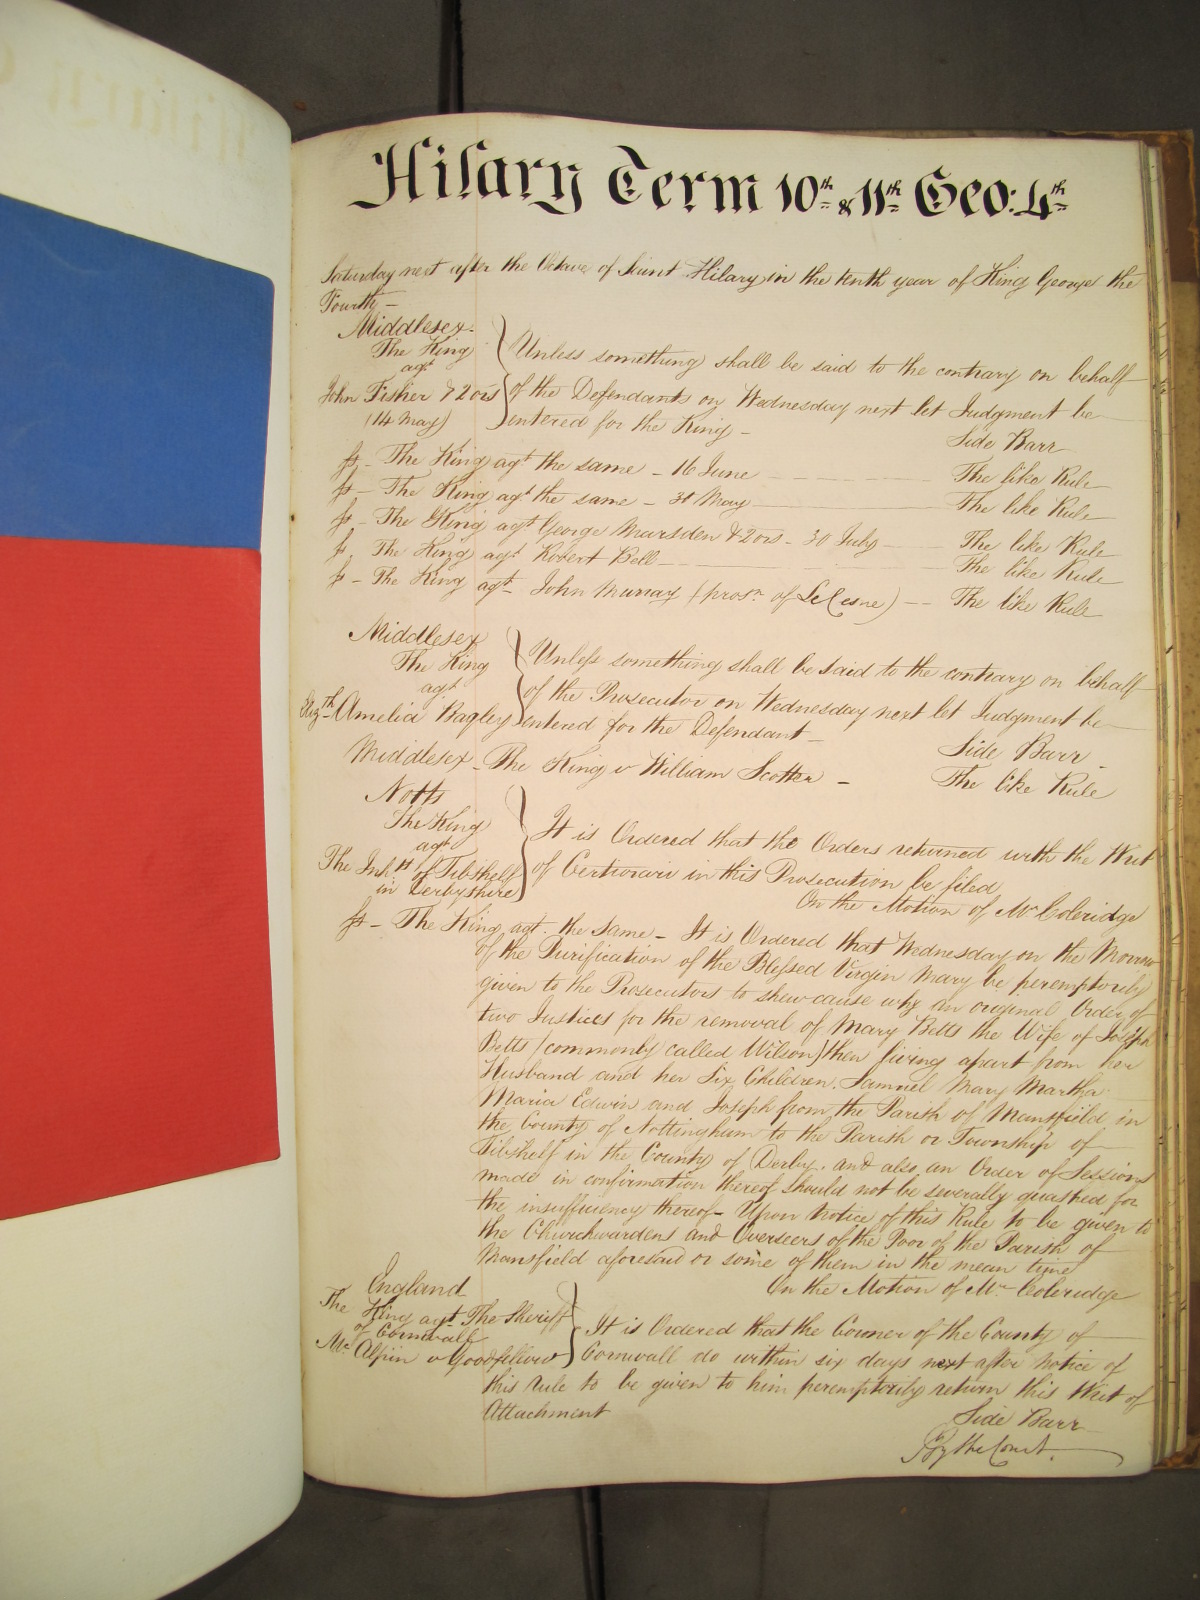 Hilary Term 10th & 11th Geo: 4th
Saturday next after the Octave of Saint Hilary in the tenth year of King George the
Fourth –
Middlesex
The King
agt
John Fisher & 2 ors
(14 May)
Unless something shall be said to the contrary on behalf
of the Defendants on Wednesday next let Judgment be
entered for the King –
Side Barr
The King agt the same – 16 June The like Rule
The King agt the same – 31 May The like Rule
The King agt George Marsden & 2 ors – 30 July The like Rule
The King agt Robert Bell The like Rule
The King agt John Murray (prosn of LeCesne) The like Rule
Middlesex
The King
agt
Elizth Amelia Bagley
Unless something shall be said to the contrary on behalf
of the Prosecutor on Wednesday next let Judgment be
entered for the Defendant –
Side Barr
Middlesex – The King v William Scotter – The like Rule
Notts
The King
agt
The Inhts of Tibshelf
in Derbyshire
It is Ordered that the Orders returned with the Writ
of Certiorari in this Prosecution be filed
On the Motion of Mr Coleridge
The King agt the same – It is Ordered that Wednesday on the Morrow
of the Purification of the Blessed Virgin Mary be peremptorily
given to the Prosecutors to shew cause why an original Order of
two Justices for the removal of Mary Betts the Wife of Joseph
Betts (commonly called Wilson) then living apart from her
Husband and her Six Children Samuel Mary Martha
Maria Edwin and Joseph from the Parish of Mansfield in
the County of Nottingham to the Parish or Township of
Tibshelf in the County of Derby. and also an Order of Sessions
made in confirmation thereof should not be severally quashed for
the insufficiency thereof – Upon Notice of this Rule to be given to
the Churchwardens and Overseers of the Poor of the Parish of
Mansfield aforesaid or some of them in the mean time
On the Motion of Mr Coleridge
England
The King agt The Sheriff
of Cornwall
Mc Alpin v Goodfellow
It is Ordered that the Coroner of the County of
Cornwall do within six days next after notice of
this rule to be given to him peremptorily return this Writ of
Attachment
Side Barr
By the Court.